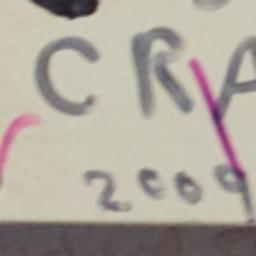 CRA
2009